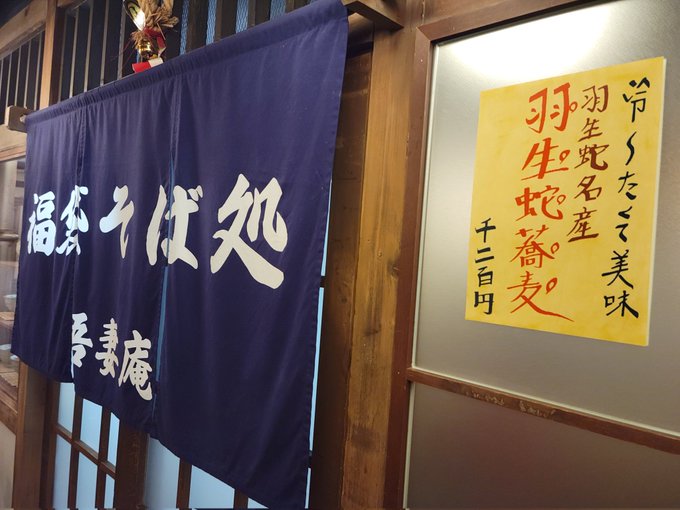 福袋そば処
吾妻庵
冷〜たくて美味
羽生蛇名産
羽生蛇蕎麦
千二百円